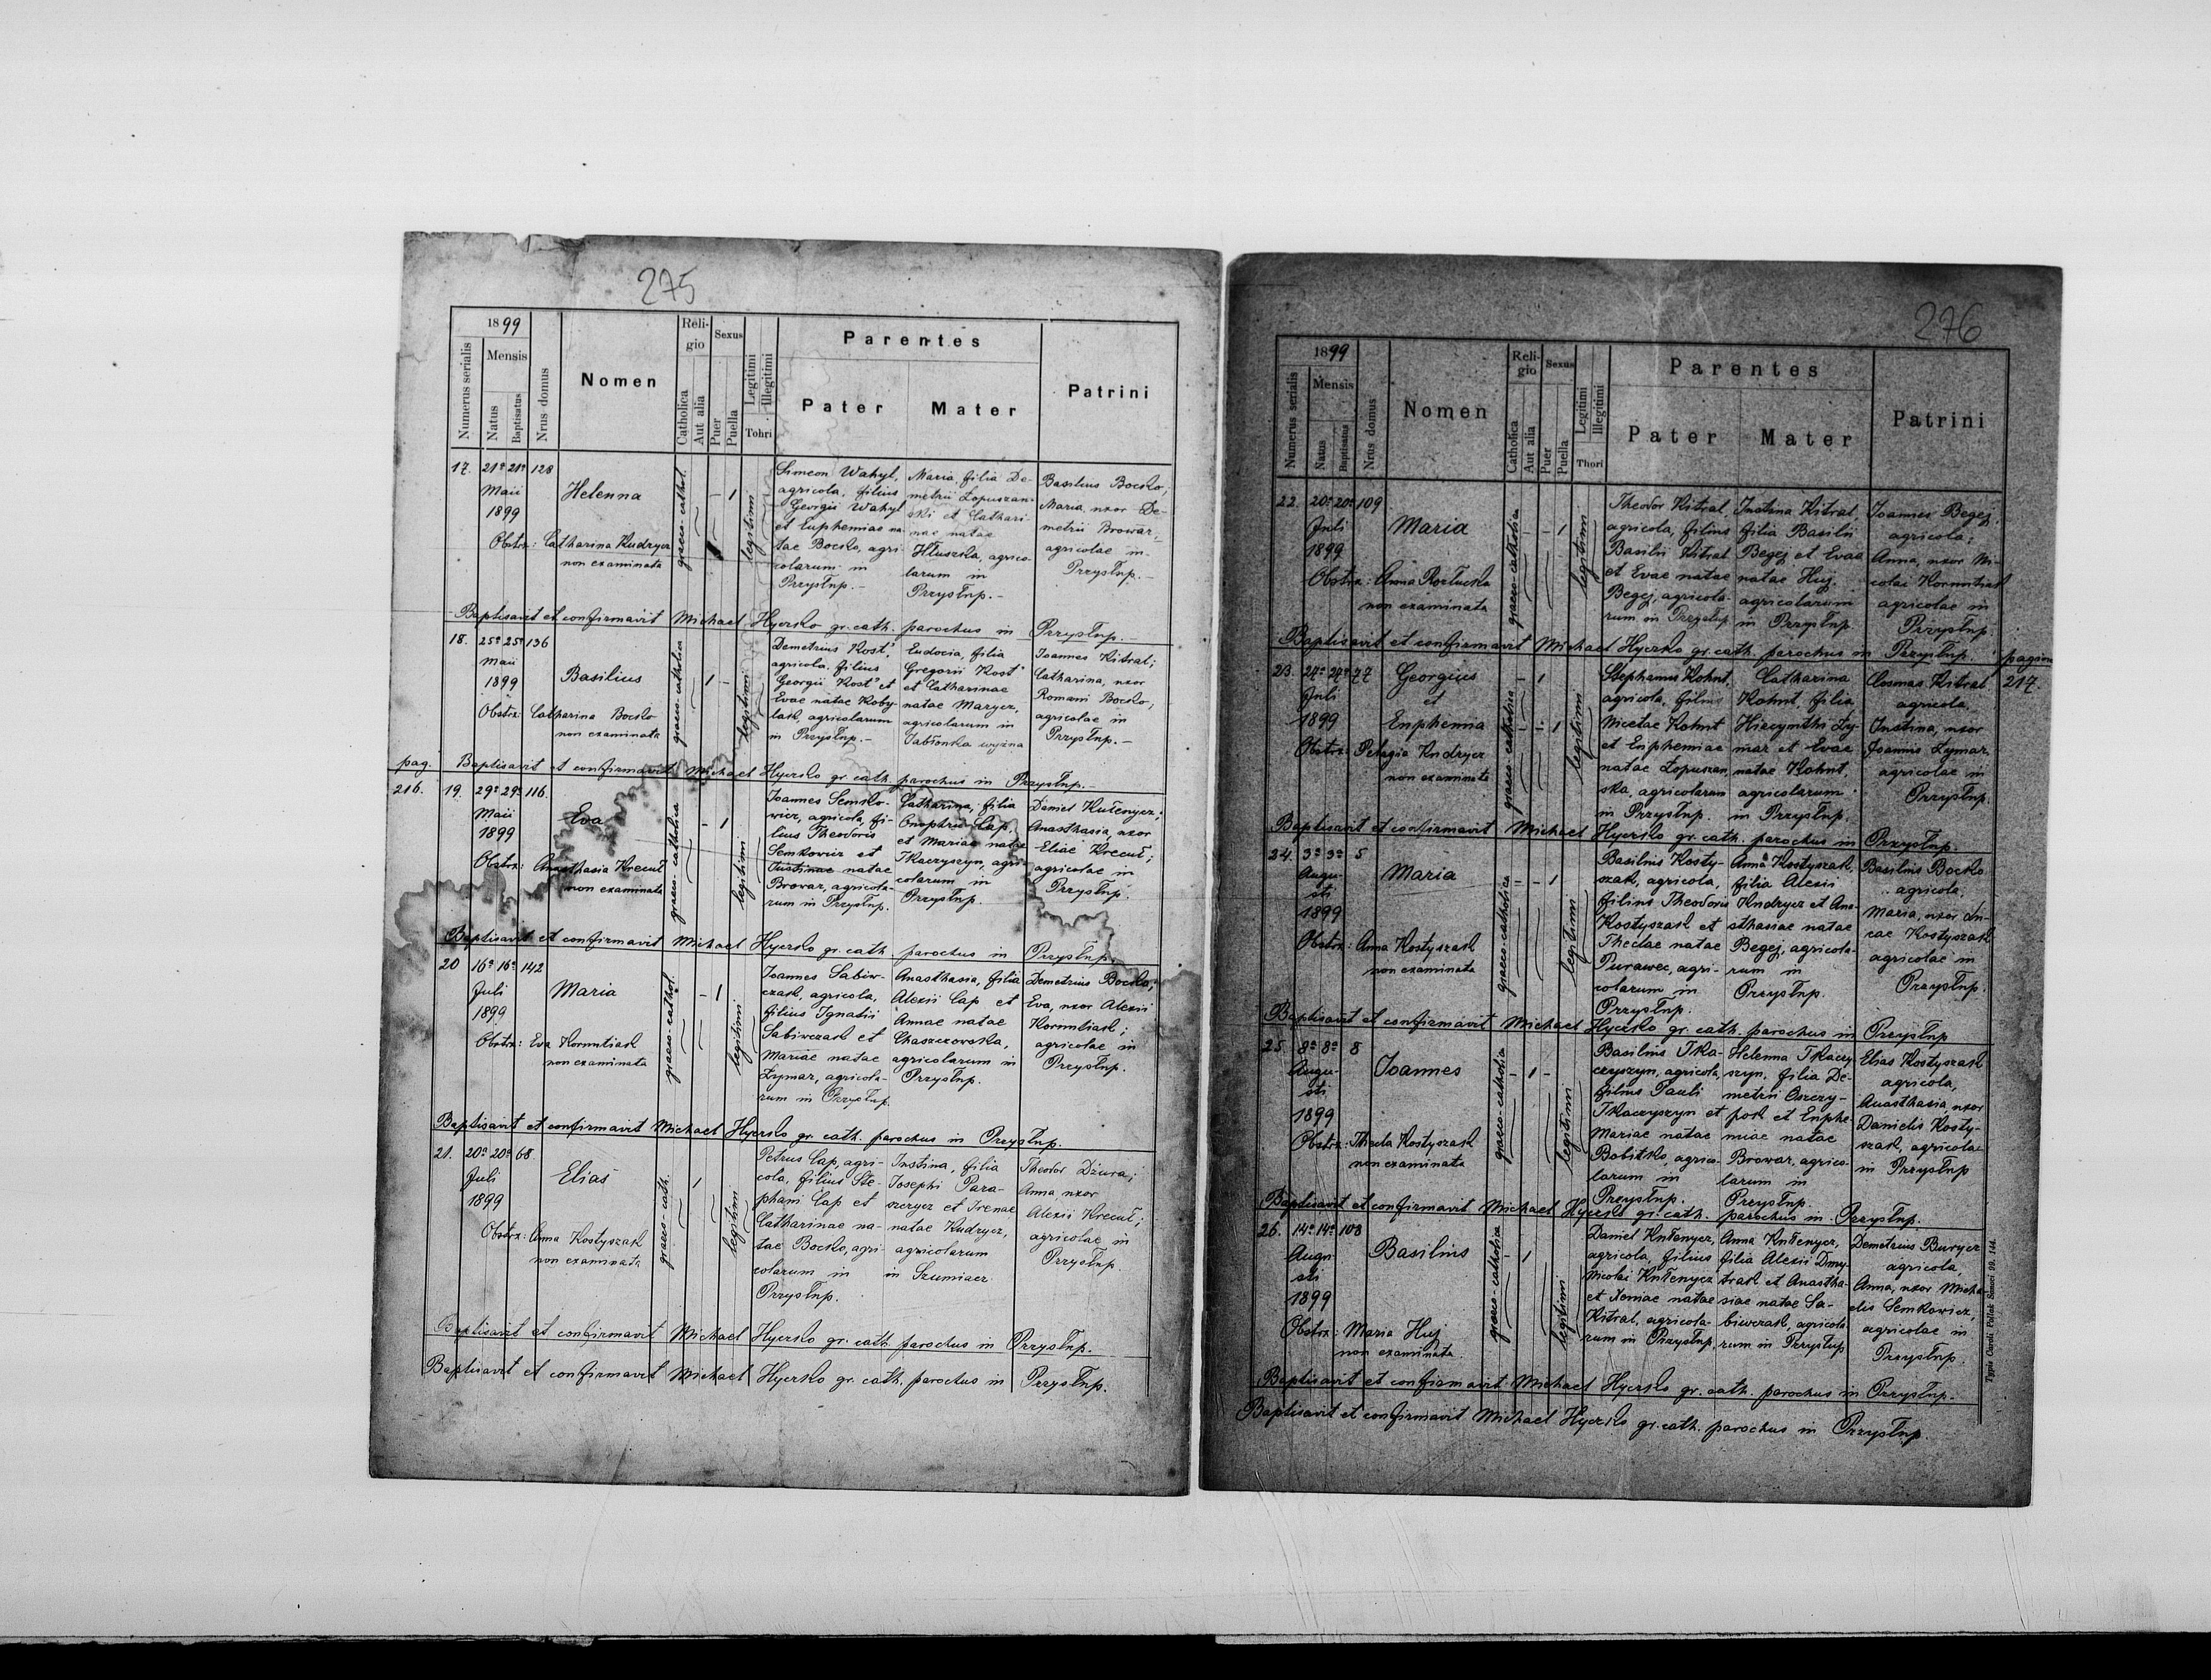 275
1899
Numerus serialis
Mensis
Natus
Baptisatus
Nrus domus
Nomen
Religio
Catholica
Aut alia
Sexus
Puer
Puella
Legitimi
Illegitimi
Tohri
Parentes
Pater
Mater
Patrini
17. 21a 21a 128
Maii
1899
Helenna
Obstx: Catharina Kudrycz
non examinata
graeco-cathol.
- 1
legitimi
Simeon Wahyl,
agricola, filius
Georgii Wahyl
et Euphemiae na-
tae Bocko, agri-
colarum in
Przysłup.-
Maria filia De-
metrii Łopuszan-
ski et Cathari-
nae natae
Hluszka, agrico-
larum in
Przysłup.-
Basilius Bocko,
Maria uxor De-
metrii Browar,
agricolae in
Przysłup.-
Baptisavit et confirmavit Michael Hyczko gr. cath. parochus in Przysłup.-
18. 25a 25a 136
Maii
1899
Basilius
Obstx: Catharina Bocko
non examinata
graeco-catholica
1 -
legitimi
Demetrius Kost',
agricola, filius
Georgii Kost' et
Evae natae Koby-
lak, agricolarum
in Przysłup.-
Eudocia, filia
Gregorii Kost'
et Catharinae
natae Marycz,
agricolarum in
Jabłonka wyżna
Joannes Kitral;
Catharina, uxor
Romani Bocko;
agricolae in
Przysłup.-
pag. Baptisavit et confirmavit Michael Hyczko gr cath parochus in Przysłup.-
216. 19. 29a 29a 116.
Maii
1899
Eva
Obstx: Anasthasia Krecuł
non examinata
graeco-catholica
- 1
legitimi
Joannes Semko-
wicz, agricola, fi-
lius Theodoris
Semkowicz et
Justinae natae
Browar, agricola-
rum in Przysłup.
Catharina, filia
Onuphrii Cap,
et Mariae natae
Tkaczyszyn, agri-
colarum in
Przysłup.
Daniel Kułenycz;
Anasthasia, uxor
Eliae Krecuł;
agricolae in
Przysłup.
Baptisavit et confirmavit Michael Hyczko gr. cath. parochus in Przysłup.
20 16a 16a 142
Juli
1899
Maria
Obstx: Eva Kornutiak
non examinata
graeco-cathol.
- 1
legitimi
Joannes Sabiw-
czak, agricola,
filius Ignatii
Sabiwczak et
Mariae natae
Żymar, agricola-
rum in Przysłup.
Anasthasia, filia
Alexii Cap et
Annae natae
Chaszczowska,
agricolarum in
Przysłup.
Demetrius Bocko;
Eva, uxor Alexii
Kornutiak;
agricolae in
Przysłup.
Baptisavit et confirmavit Michael Hyczko gr. cath. parochus in Przysłup.
21. 20a 20a 68
Juli
1899
Elias
Obstx: Anna Kostyszak
non examinata
graeco-cath.
1
legitimi
Petrus Cap, agri-
cola, filius Ste-
phani Cap et
Catharinae na-
tae Bocko, agri-
colarum in
Przysłup.
Justina, filia
Josephi Para-
szczycz et Irenae
natae Kudrycz,
agricolarum
in Szumiacz
Theodor Dziura;
Anna, uxor
Alexii Krecuł;
agricolae in
Przysłup
Baptisavit et confirmavit Michael Hyczko gr. cath. parochus in Przysłup.
Baptisavit et confirmavit Michael Hyczko gr. cath. parochus in Przysłup.
276
1899
Numerus serialis
Mensis
Natus
Baptisatus
Nrus domus
Nomen
Religio
Catholica
Aut alia
Sexus
Puer
Puella
Legitimi
Illegitimi
Thori
Parentes
Pater
Mater
Patrini
22. 20a 20a 109
Juli
1899
Maria
Obstx: Anna Rozłucka
non examinata
graeco-catholica
- 1
legitimi
Theodor Kitral,
agricola, filius
Basilii Kitral
et Evae natae
Begej, agricola-
rum in Przysłup
Justina Kitral
filia Basilii
Begej et Evae
natae Huj.
agricolarum
in Przysłup
Joannes Begej,
agricola;
Anna, uxor Ni-
colai Kornutiak
agricolae in
Przysłup
Baptisavit et confirmavit Michael Hyczko gr. cath. parochus in Przysłup. pagina
23. 24a 24a 77
Juli
1899
Georgius
et
Euphemia
Obstx: Pelagia Kudrycz
non examinata
graeco-catholica
- 1
- - 1
legitimi
Stephanus Kohut,
agricola, filius
Nicetae Kohut
et Euphemiae
natae Łopuszan,
ska, agricolarum
in Przysłup.
Catharina
Kohut, filia
Hieronymi Ży-
mar et Evae
natae Kohut,
agricolarum
in Przysłup.
Cosmas Kitral
agricola,
Justina, uxor
Joannis Żymar
agricolae in
Przysłup.
217.
Baptisavit et confirmavit Michael Hyczko gr. cath. parochus in Przysłup.
24. 3a 3a 5
Augu-
sti
1899
Maria
Obstx: Anna Kostyszak
non examinata
graeco-catholica
- - 1
legitimi
Basilius Kosty-
szak, agricola,
filius Theodoris
Kostyszak et
Theclae natae
Purawec, agri-
colarum in
Przysłup.
Anna Kostyszak,
filia Alexii
Kudrycz et Ana-
sthasiae natae
Begej, agricola-
rum in
Przysłup.
Basilius Bocko
agricola,
Maria, uxor Lu-
cae Kostyszak
agricolae in
Przysłup.
Baptisavit et confirmavit Michael Hyczko gr. cath. parochus in Przysłup
25. 8a 8a 8
Augu-
sti
1899
Joannes
Obstx: Thecla Kostyszak
non examinata
graeco-catholica
- 1 -
legitimi
Basilius Tka-
czyszyn, agricola,
filius Pauli
Tkaczyszyn et
Mariae natae
Bobitko, agrico-
larum in
Przysłup.
Helenna Tkaczy
szyn, filia De-
metrii Oszczy-
pok et Euphe-
miae natae
Browar, agrico-
larum in
Przysłup
Elias Kostyszak
agricola,
Anasthasia, uxor
Danielis Kosty-
szak, agricolae
in Przysłup
Baptisavit et confirmavit Michael Hyczko gr. cath. parochus in Przysłup.
26. 14a 14a 103
Augu
sti
1899
Basilius
Obstx: Maria Huj
non examinata
graeco-catholica
- 1
legitimi
Daniel Kułenycz,
agricola, filius
Nicolai Kułenycz
et Xeniae natae
Kitral, agricola-
rum in Przysłup,
Anna Kułenycz,
filia Alexii Dmy
trak et Anastha-
siae natae Sa-
biwczak, agricola
rum in Przysłup
Demetrius Burycz
agricola
Anna, uxor Micha
elis Semkowicz,
agricolae in
Przysłup.
Baptisavit et confirmavit Michael Hyczko gr. cath. parochus in Przysłup.
Baptisavit et confirmavit Michael Hyczko gr. cath. parochus in Przysłup.
Typis Caroli Pollak Sanoci 99. 144.